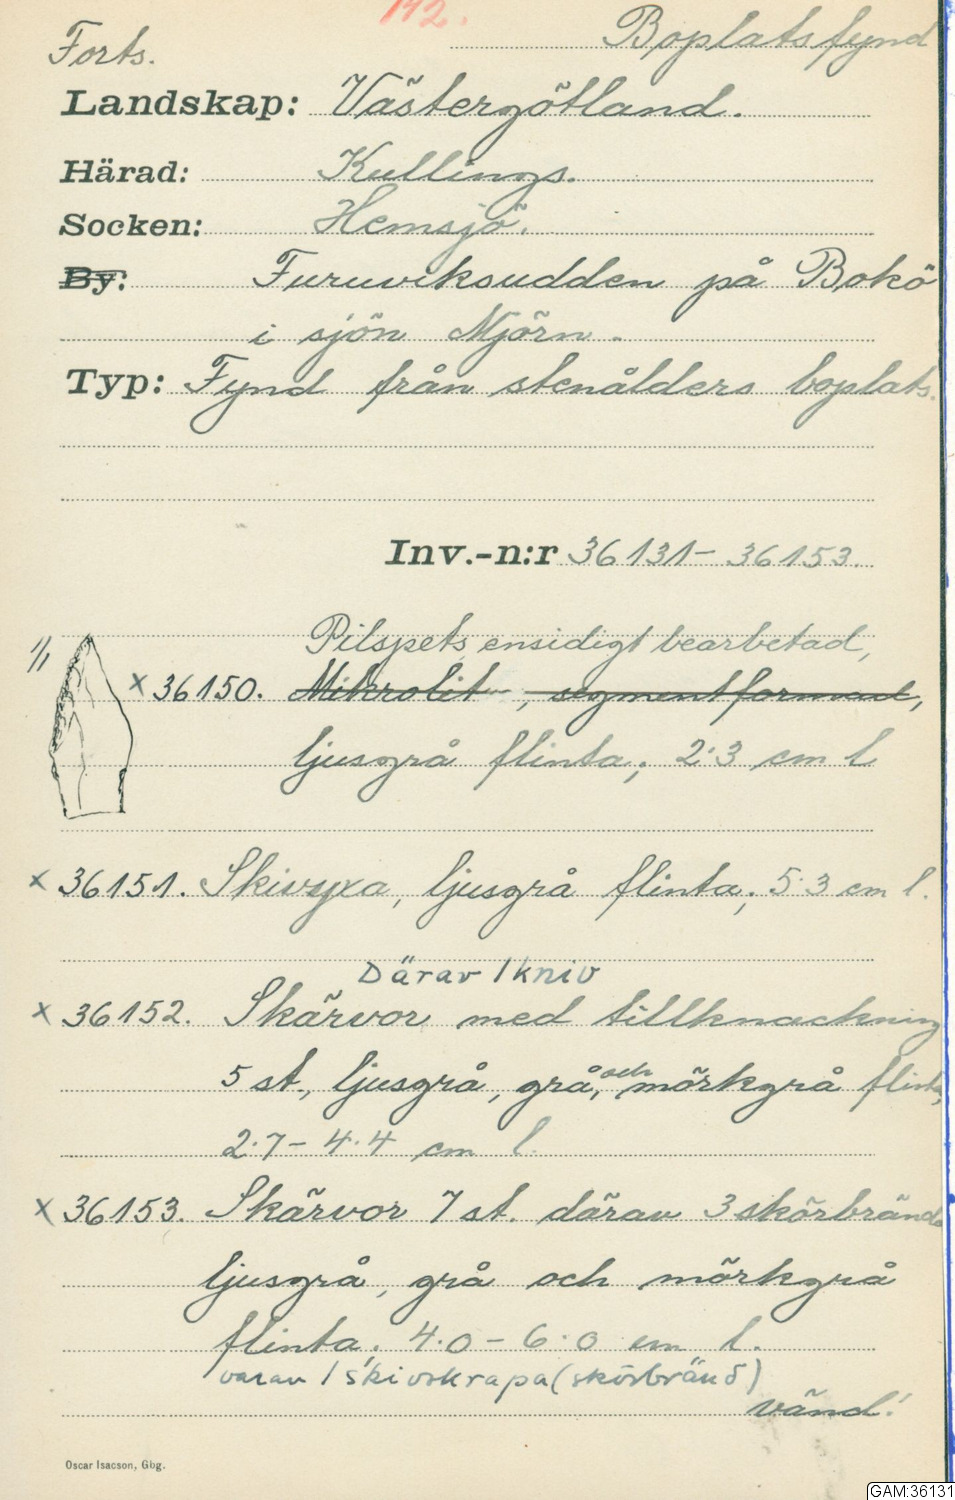 142.
Forts. Boplatsfynd
Landskap: Västergötland.
Härad: Kullings.
Socken: Hemsjö.
By: Furuviksudden på Bokö
i sjön Mjörn.
Typ: Fynd från stenålders boplats.
Inv.-n:r 36131-36153.
1/1 Pilspets, ensidigt bearbetad,
x 36150. Mikrolit, segmentformad,
ljusgrå flinta; 2.3 cm l
x 36151. Skivyxa, ljusgrå flinta; 5.3 cm l.
Därav 1 kniv
x 36152. Skärvor med tillknackning
5 st., ljusgrå, grå, och mörkgrå flinta,
2.7-4.4 cm l.
x 36153. Skärvor 7 st. därav 3 skörbrända
ljusgrå, grå och mörkgrå
flinta; 4.0-6.0 cm l.
varav 1 skivskrapa (skörbränd)
vänd!
Oscar Isacson, Gbg.
GAM:36131